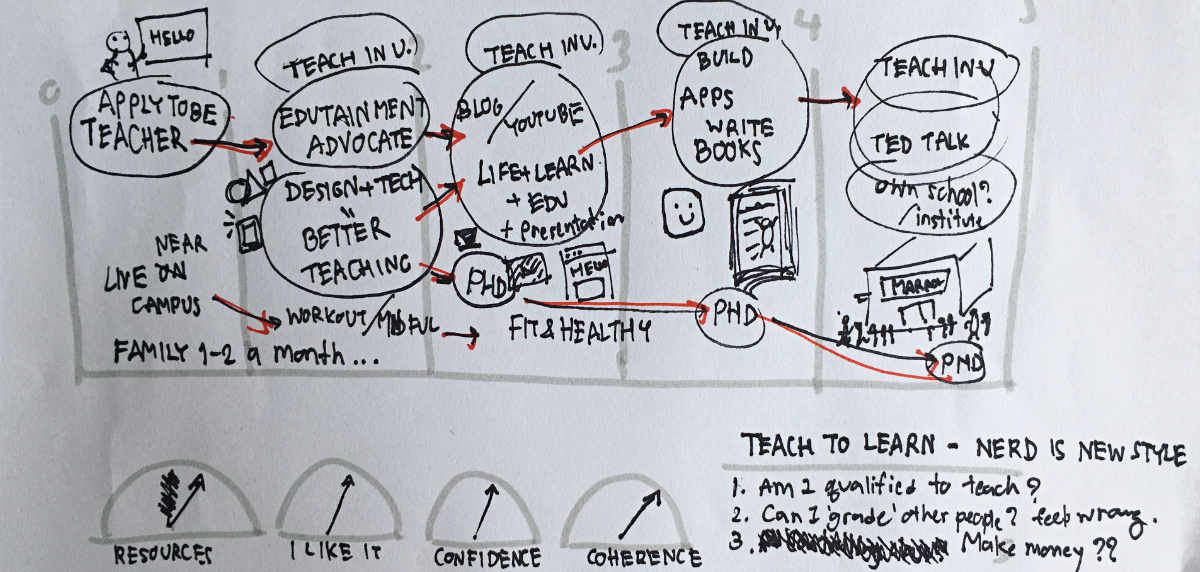 0
2
3
4
5
HELLO
APPLY TO BE
TEACHER
TEACH IN U.
EDUTAINMENT
ADVOCATE
DESIGN + TECH
=
BETTER
TEACHING
TEACH IN U.
BLOG / YOUTUBE
LIFE + LEARN
+ EDU
+ Presentation
TEACH IN U.
BUILD
APPS
WRITE
BOOKS
TEACH IN U
TED TALK
own school?
/institute
NEAR
LIVE ON
CAMPUS
WORKOUT /
FIT & HEALTHY
FAMILY 1-2 a month...
PHD
HELLO
PHD
PHD
RESOURCES
I LIKE IT
CONFIDENCE
COHERENCE
TEACH TO LEARN - NERD IS NEW STYLE
1. Am I qualified to teach?
2. Can I 'grade' other people? feel wrong.
3. Make money ??